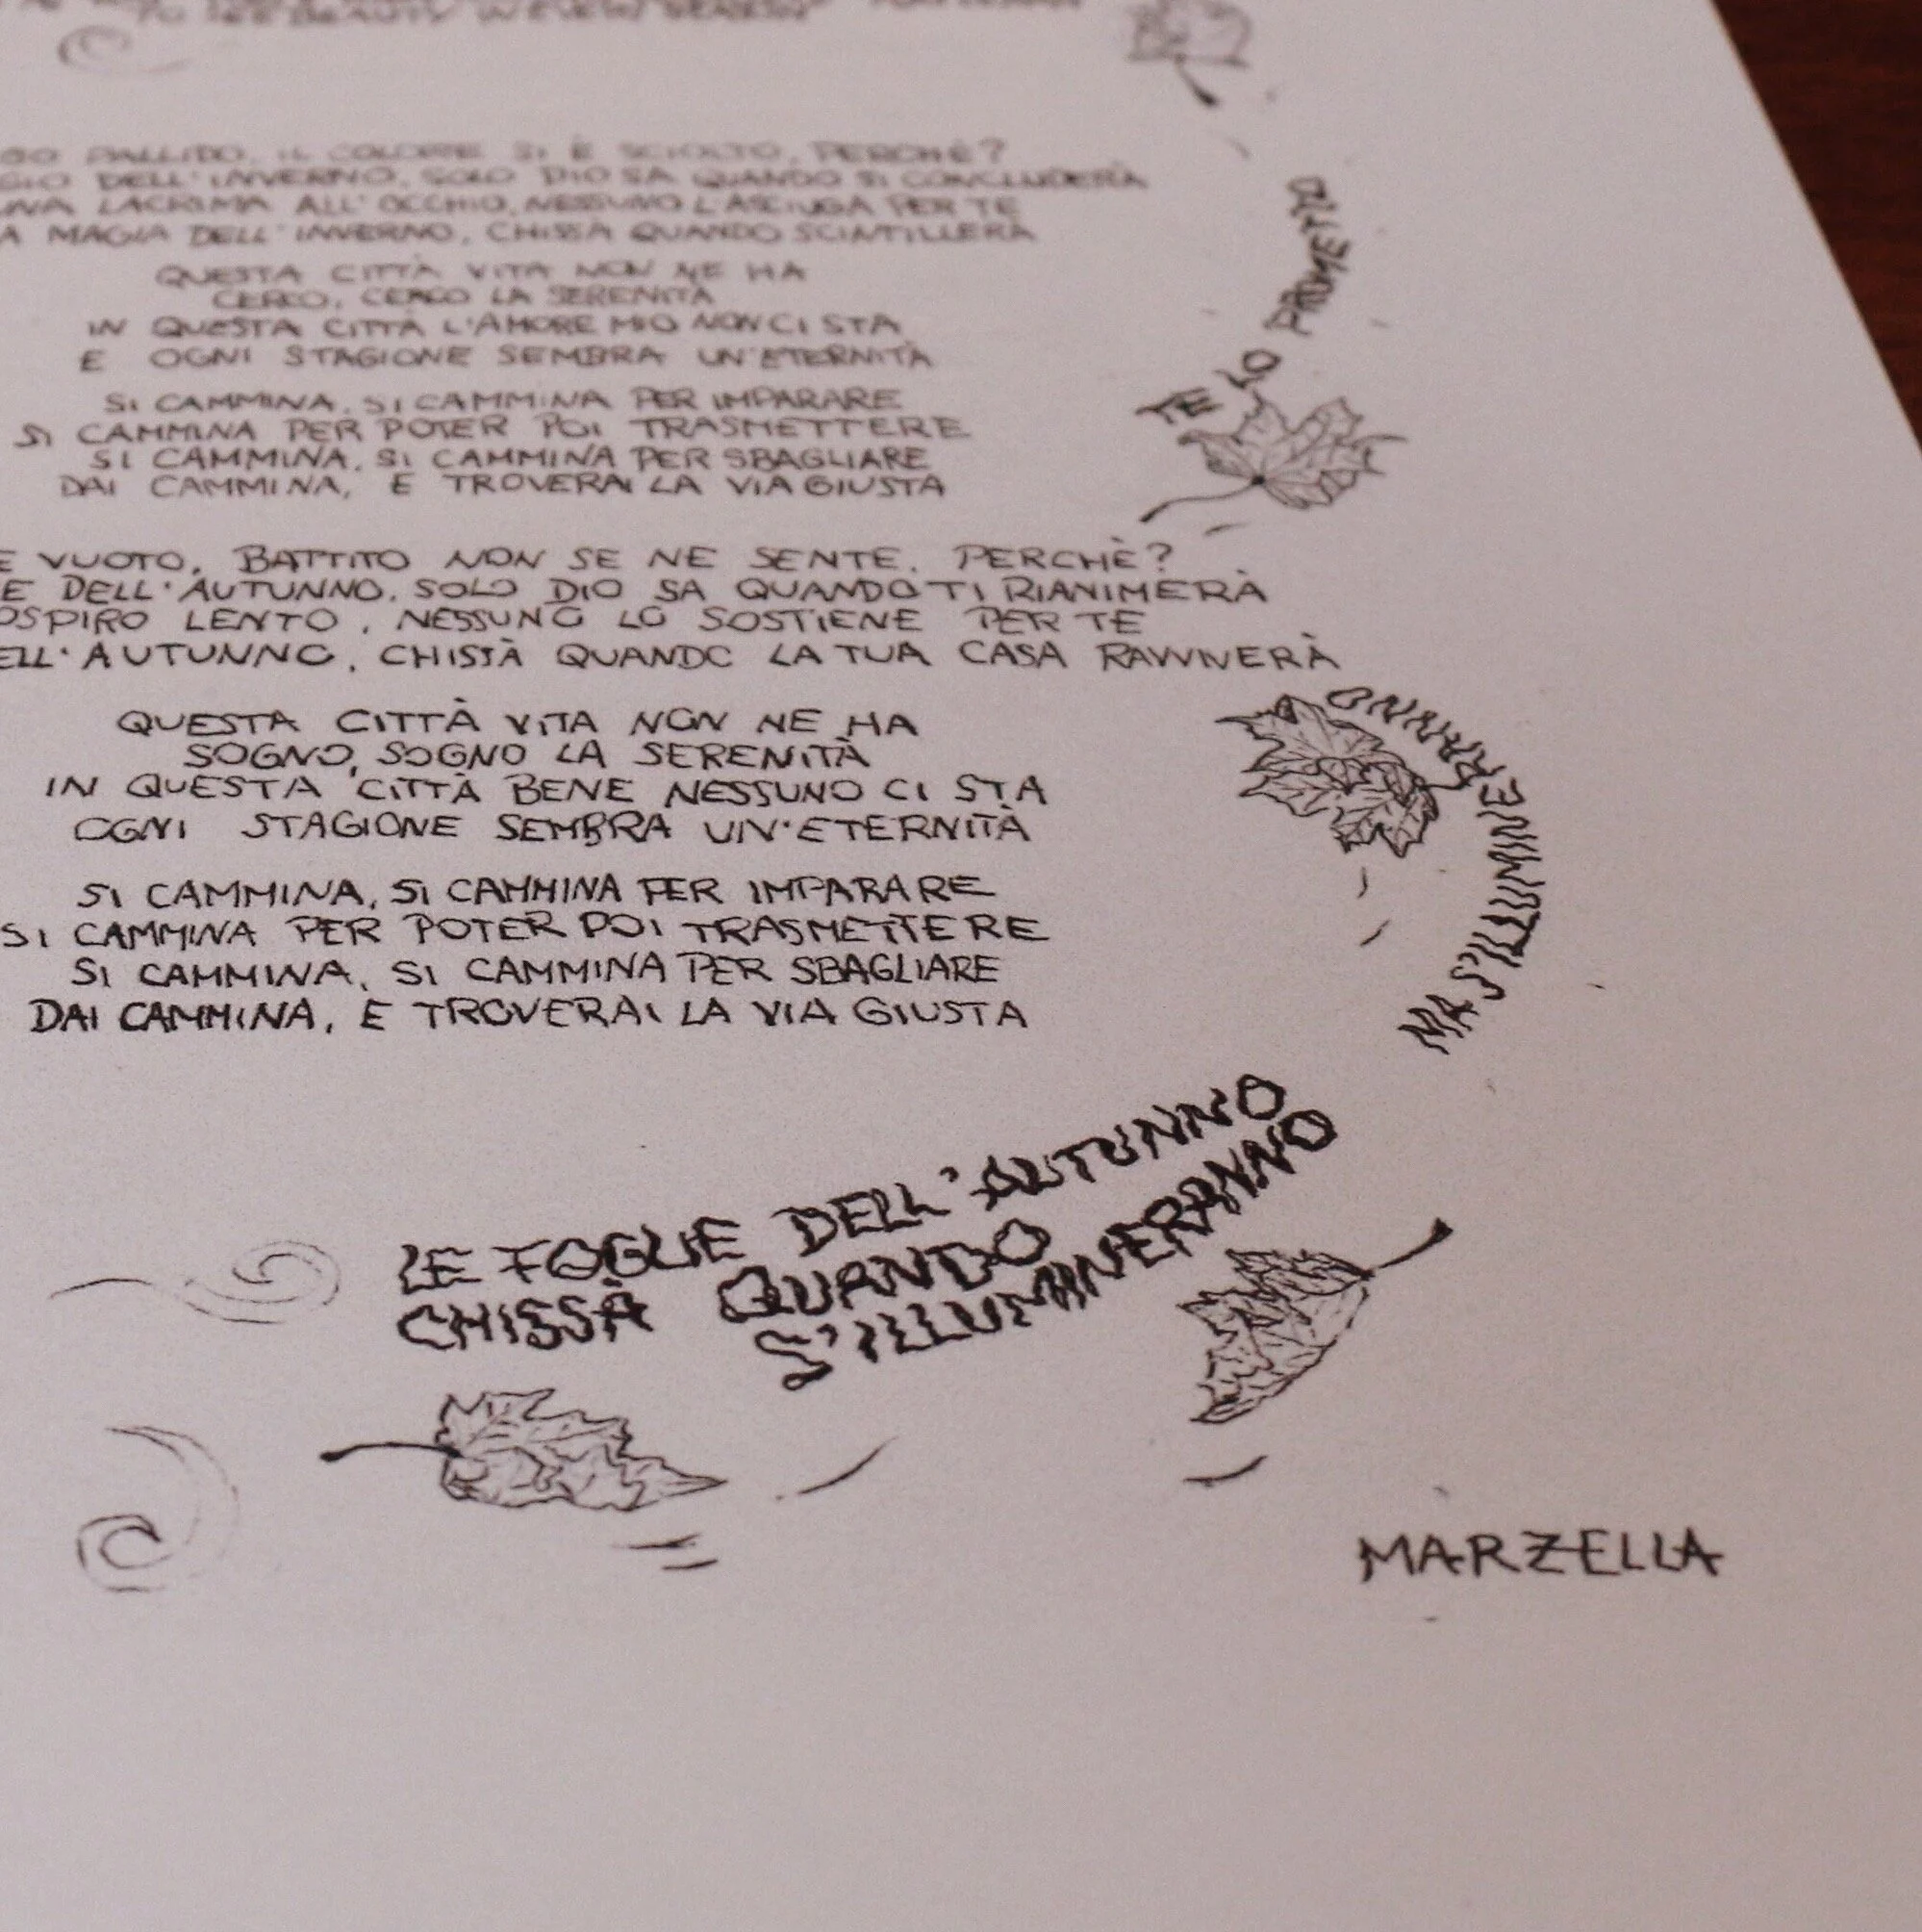 TO SEE BEAUTY IN EVERY SEASON
PALLIDO, IL COLORE SI È SCIOLTO, PERCHÈ?
DELL'INVERNO, SOLO DIO SA QUANDO SI CONCLUDERÀ
LACRIMA ALL'OCCHIO, NESSUNO L'ASCIUGA PER TE
A MAGIA DELL'INVERNO, CHISSÀ QUANDO SCINTILLERÀ
QUESTA CITTÀ VITA NON NE HA
CERCO, CERCO LA SERENITÀ
IN QUESTA CITTÀ L'AMORE MIO NON CI STA
E OGNI STAGIONE SEMBRA UN'ETERNITÀ
SI CAMMINA, SI CAMMINA PER IMPARARE
SI CAMMINA PER POTER POI TRASMETTERE
SI CAMMINA, SI CAMMINA PER SBAGLIARE
DAI CAMMINA, E TROVERAI LA VIA GIUSTA
TE LO PROMETTO
E VUOTO, BATTITO NON SE NE SENTE, PERCHÈ?
E DELL'AUTUNNO, SOLO DIO SA QUANDO TI RIANIMERÀ
OSPIRO LENTO, NESSUNO LO SOSTIENE PER TE
ELL'AUTUNNO, CHISSÀ QUANDO LA TUA CASA RAVVIVERÀ
QUESTA CITTÀ VITA NON NE HA
SOGNO, SOGNO LA SERENITÀ
IN QUESTA CITTÀ BENE NESSUNO CI STA
OGNI STAGIONE SEMBRA UN'ETERNITÀ
SI CAMMINA, SI CAMMINA PER IMPARARE
SI CAMMINA PER POTER POI TRASMETTERE
SI CAMMINA, SI CAMMINA PER SBAGLIARE
DAI CAMMINA, E TROVERAI LA VIA GIUSTA
MA S'ILLUMINERANNO
LE FOGLIE DELL'AUTUNNO
CHISSÀ QUANDO
S'ILLUMINERANNO
MARZELLA